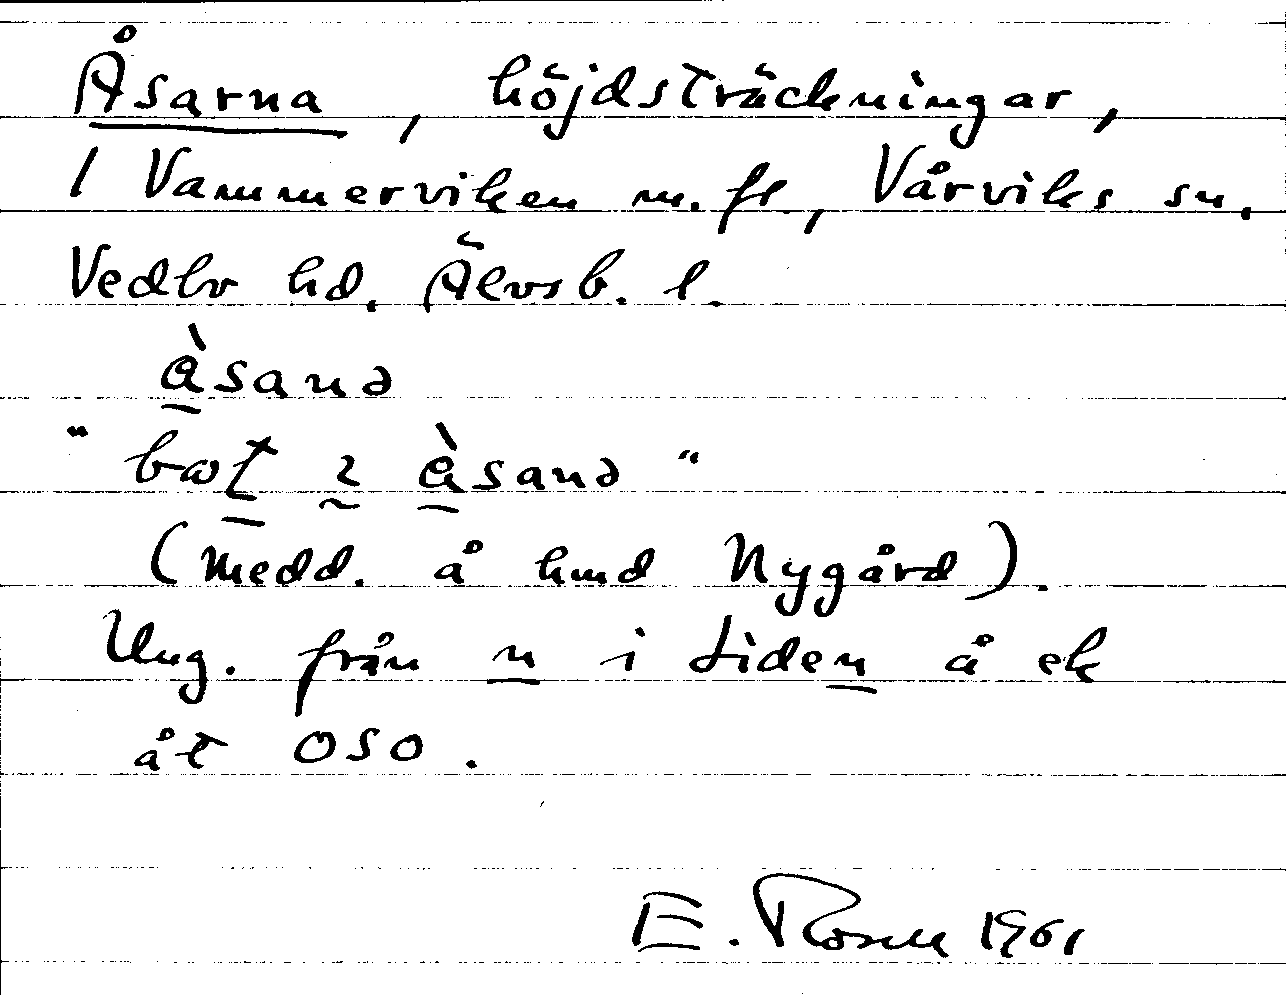 Åsarna, höjdsträckningar,
1 Vammerviken m. fl., Vårviks sn.
Vedbo hd. Älvsb. l.
àsanə
" bɷt ɩ àsanə "
(Medd. å hmd Nygård).
Ung. från n i Liden å ek
åt OSO.
E. Rosell 1961